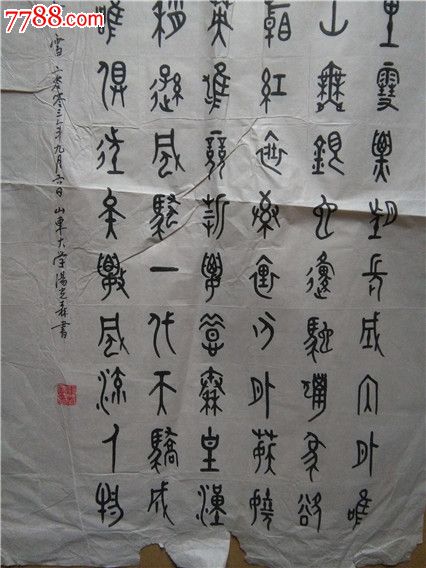 里雪飄望長城內外唯
山舞銀蛇原馳蠟象欲
看紅裝素裹分外妖嬈
英雄競折腰惜秦皇漢
稍遜風騷一代天驕成
雕俱往矣數風流人物
雪 二零零三年九月六日 山東大学湯光森書
7788.com